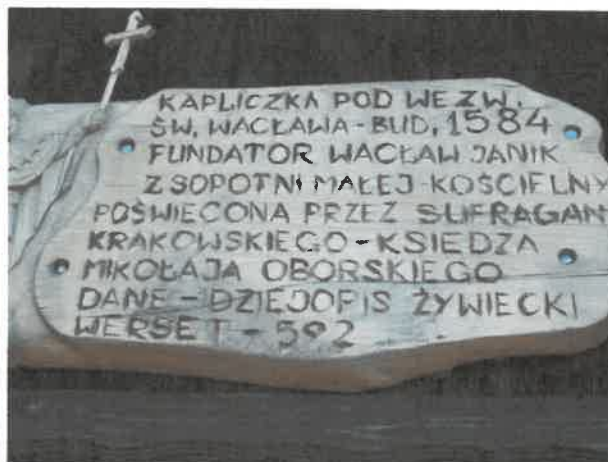 KAPLICZKA POD WEZW.
ŚW. WACŁAWA - BUD. 1584
FUNDATOR WACŁAW JANIK
Z SOPOTNI MAŁEJ-KOŚCIELNY
POŚWIECONA PRZEZ SUFRAGAN
KRAKOWSKIEGO - KSIEDZA
MIKOŁAJA OBORSKIEGO
DANE - DZIEJOPIS ŻYWIECKI
WERSET - 592